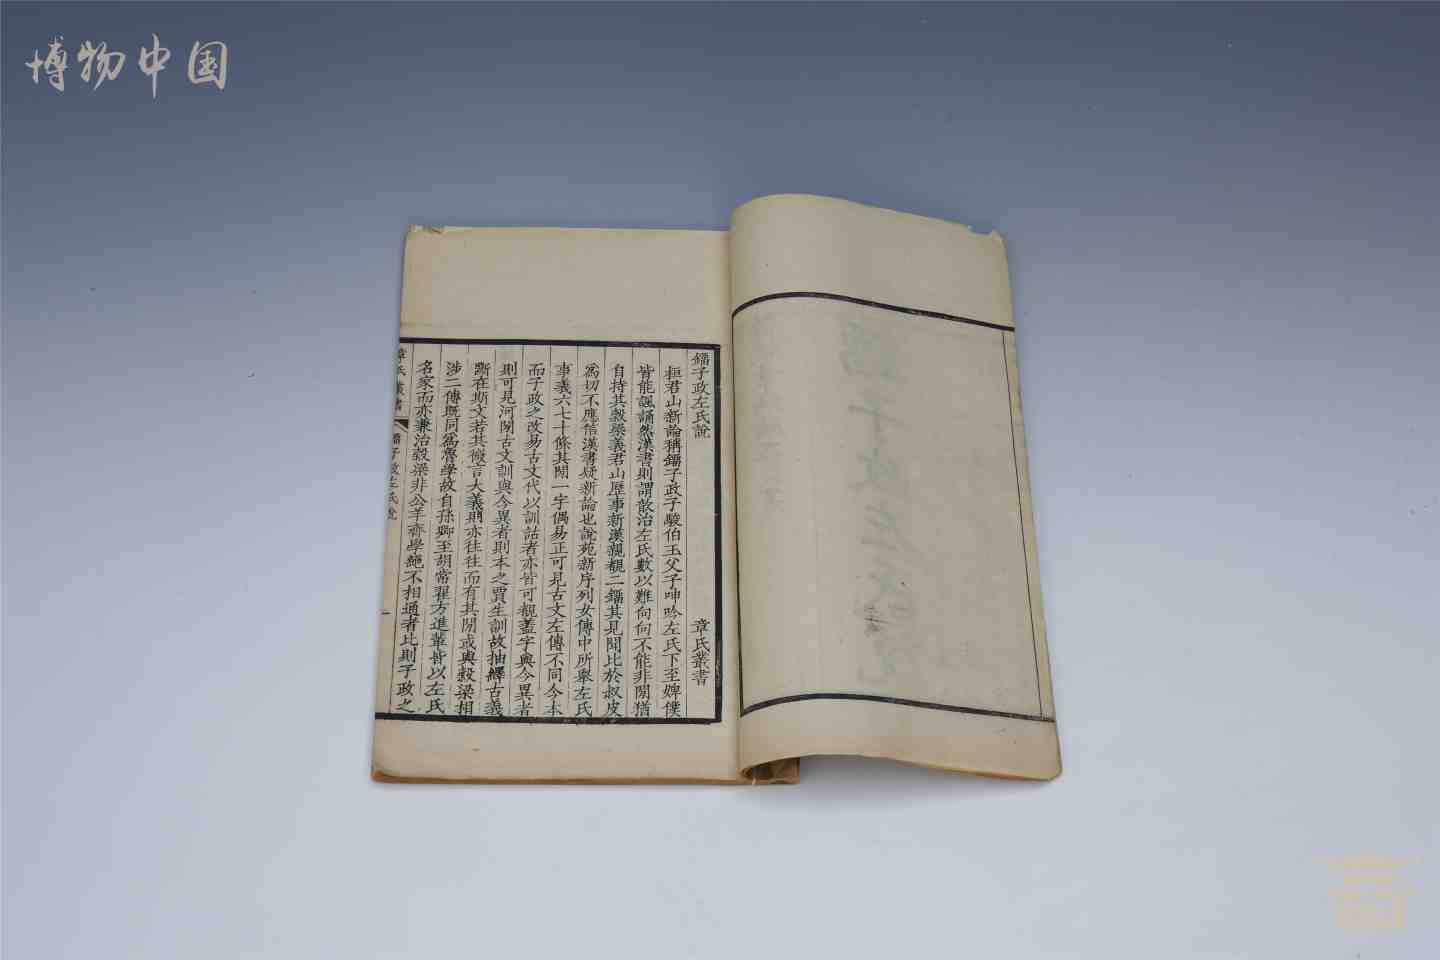 博物中国
鐂子政左氏說
章氏叢書
桓君山新論稱鐂子政子駿伯玉父子呻吟左氏下至婢僕
皆能諷誦然漢書則謂歆治左氏數以難向向不能非閒猶
自持其穀梁義君山歷事新漢親覩二鐂其見聞比於叔皮
爲切不應信漢書疑新論也說苑新序列女傳中所舉左氏
事義六七十條其閒一字偶易正可見古文左傳不同今本
而子政之改易古文代以訓詁者亦皆可觀蓋字與今異者
則可見河閒古文訓與今異者則本之賈生訓故抽繹古義
斷在斯文若其微言大義則亦往往而有其閒或與穀梁相
涉二傳既同爲魯學故自孫卿至胡常翟方進輩皆以左氏
名家而亦兼治穀梁非公羊齊學絕不相通者比則子政之
章氏叢書
鐂子政左氏說
一